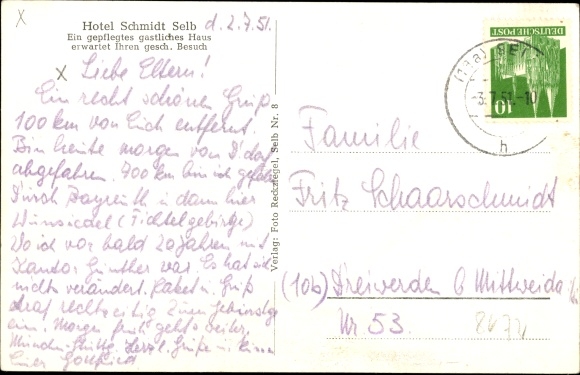 Hotel Schmidt Selb
Ein gepflegtes gastliches Haus
erwartet Ihren gesch. Besuch
d. 2.7.51.
Liebe Eltern!
Ein recht schönen Gruß
100 km von Euch entfernt.
Bin heute morgen von D'dorf
abgefahren. 700 km bin ich gefahren
Durch Bayreuth u. dann hier
Wunsiedel (Fichtelgebirge)
Wo ich vor bald 20 Jahren mit
Kantor Günther war. Es hat sich
nichts verändert. Paket u. Gruß
traf rechtzeitig zum Geburtstage
ein. Morgen früh geht's weiter,
München Stuttg. Herzl. Grüße u. Küsse
Euer Gottfried
Verlag: Foto Reckziegel, Selb Nr. 8
DEUTSCHE POST
10
(13a) SELB
-3.7.51.-10
h
Familie
Fritz Schaarschmidt
(10b) Dreiwerden b Mittweida
Nr 53.